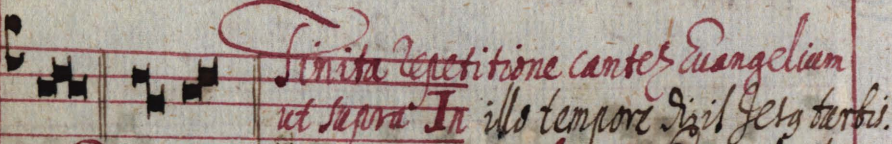 Finita repetitione cantet Euangelium
ut supra In illo tempore dixit Jesꝯ turbis.